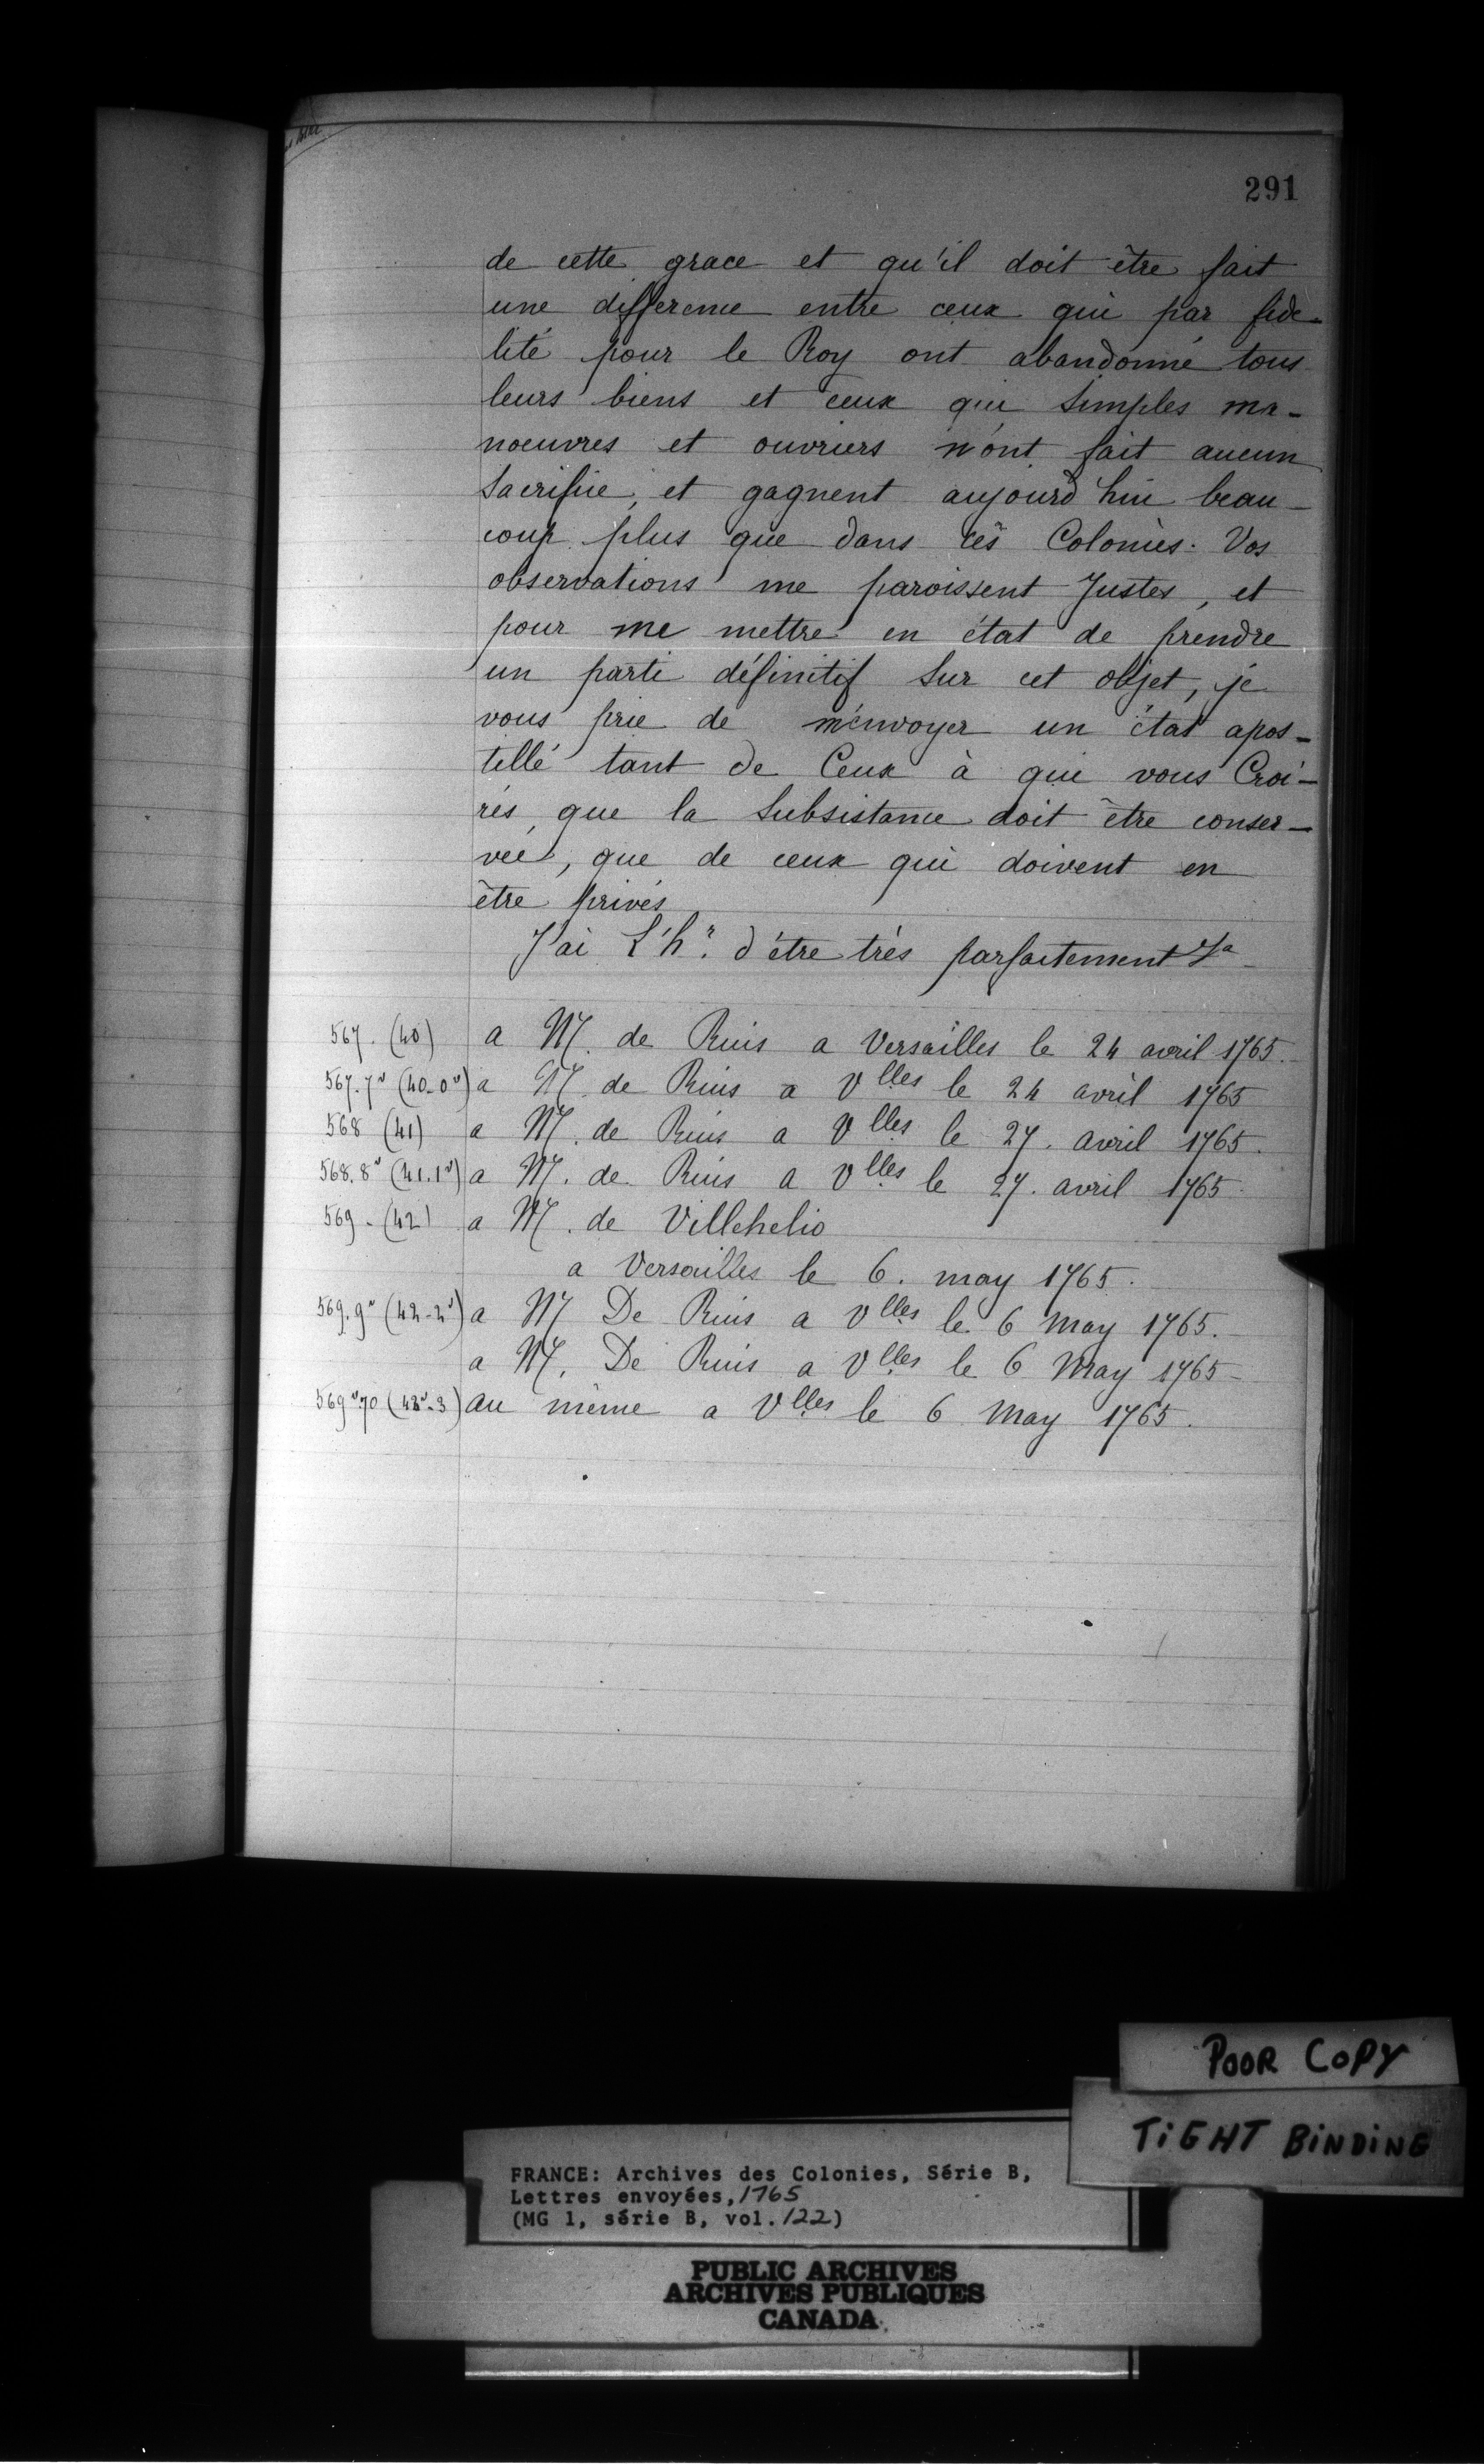 291
de cette grace et qu'il doit être fait
une difference entre ceux qui par fide-
lité pour le Roy ont abandonné tous
leurs biens et ceux qui simples ma-
noeuvres et ouvriers n'ont fait aucun
sacrifice, et gagnent aujourd'hui beau-
coup plus que dans les Colonies. Vos
observations me paroissent Justes, et
pour me mettre en état de prendre
un parti définitif sur cet objet, je
vous prie de m'envoyer un état apos-
tillé tant de Ceux à qui vous Croi-
rés, que la subsistance doit être conser-
vée, que de ceux qui doivent en
être privés
J'ai L'h.r d'être trés parfaitement &a
567. (40) a M. de Ruis a Versailles le 24 avril 1765.
567.7v (40-0v) a M. de Ruis a Vlles le 24 avril 1765
568 (41) a M. de Ruis a Vlles le 27. avril 1765.
568.8v (41.1v) a M. de Ruis a Vlles le 27. avril 1765.
569 - (42) a M. de Villehelio
a Versailles le 6. may 1765.
569.9v (42-2v) a M De Ruis a Vlles le 6 May 1765.
a M. De Ruis a Vlles le 6 May 1765-
569v70 (42v-3) au même a Vlles le 6 May 1765.
POOR COPY
TIGHT BINDING
FRANCE: Archives des Colonies, Série B,
Lettres envoyées, 1765
(MG 1, série B, vol. 122)
PUBLIC ARCHIVES
ARCHIVES PUBLIQUES
CANADA